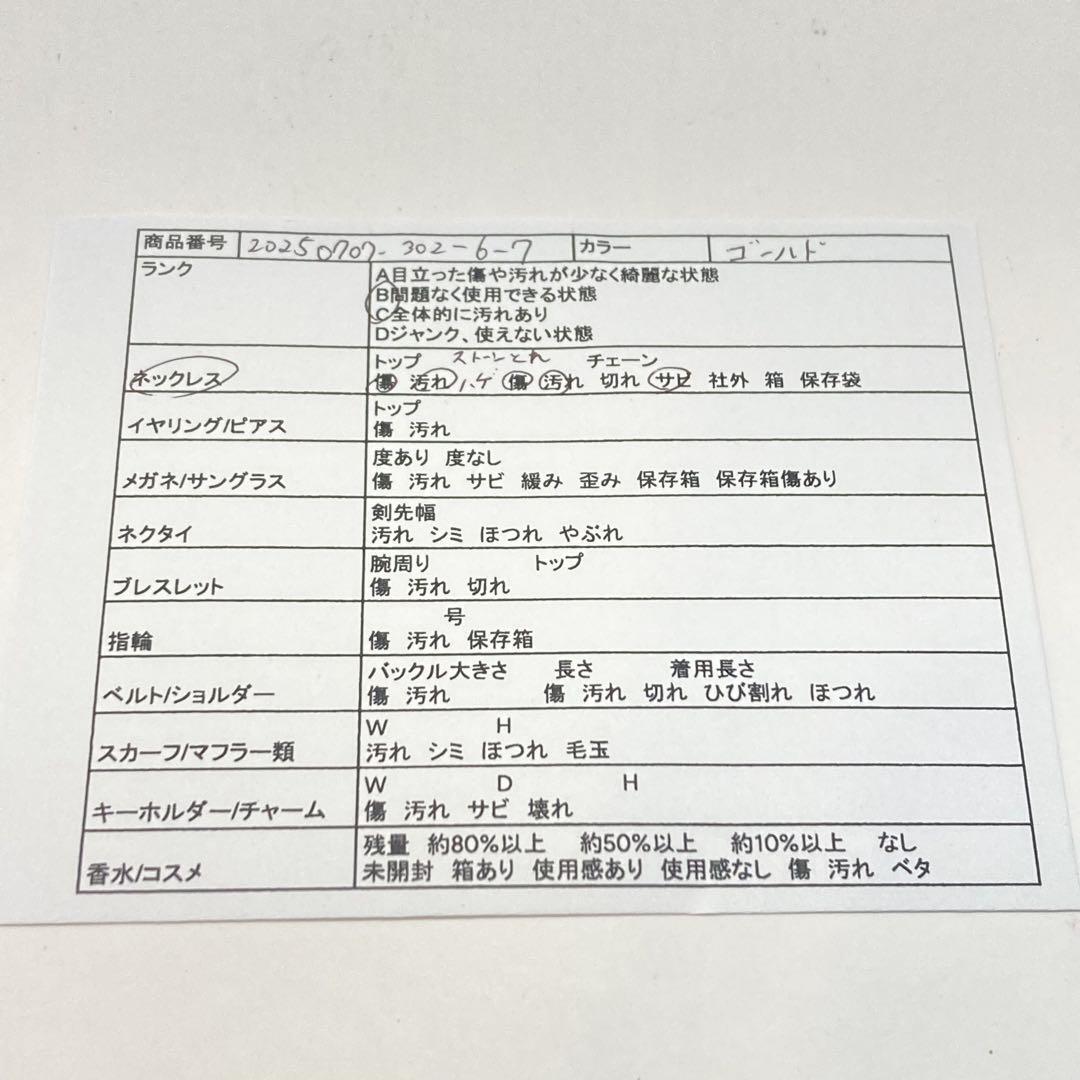 商品番号 20250707-302-6-7 カラー ゴールド
ランク
A目立った傷や汚れが少なく綺麗な状態
B問題なく使用できる状態
C全体的に汚れあり
Dジャンク、使えない状態
トップ ストーンとれ チェーン
ネックレス 傷 汚れ ハゲ 傷 汚れ 切れ サビ 社外 箱 保存袋
トップ
イヤリング/ピアス 傷 汚れ
度あり 度なし
メガネ/サングラス 傷 汚れ サビ 緩み 歪み 保存箱 保存箱傷あり
剣先幅
ネクタイ 汚れ シミ ほつれ やぶれ
腕周り トップ
ブレスレット 傷 汚れ 切れ
号
指輪 傷 汚れ 保存箱
バックル大きさ 長さ 着用長さ
ベルト/ショルダー 傷 汚れ 傷 汚れ 切れ ひび割れ ほつれ
W H
スカーフ/マフラー類 汚れ シミ ほつれ 毛玉
W D H
キーホルダー/チャーム 傷 汚れ サビ 壊れ
残量 約80%以上 約50%以上 約10%以上 なし
香水/コスメ 未開封 箱あり 使用感あり 使用感なし 傷 汚れ ベタ